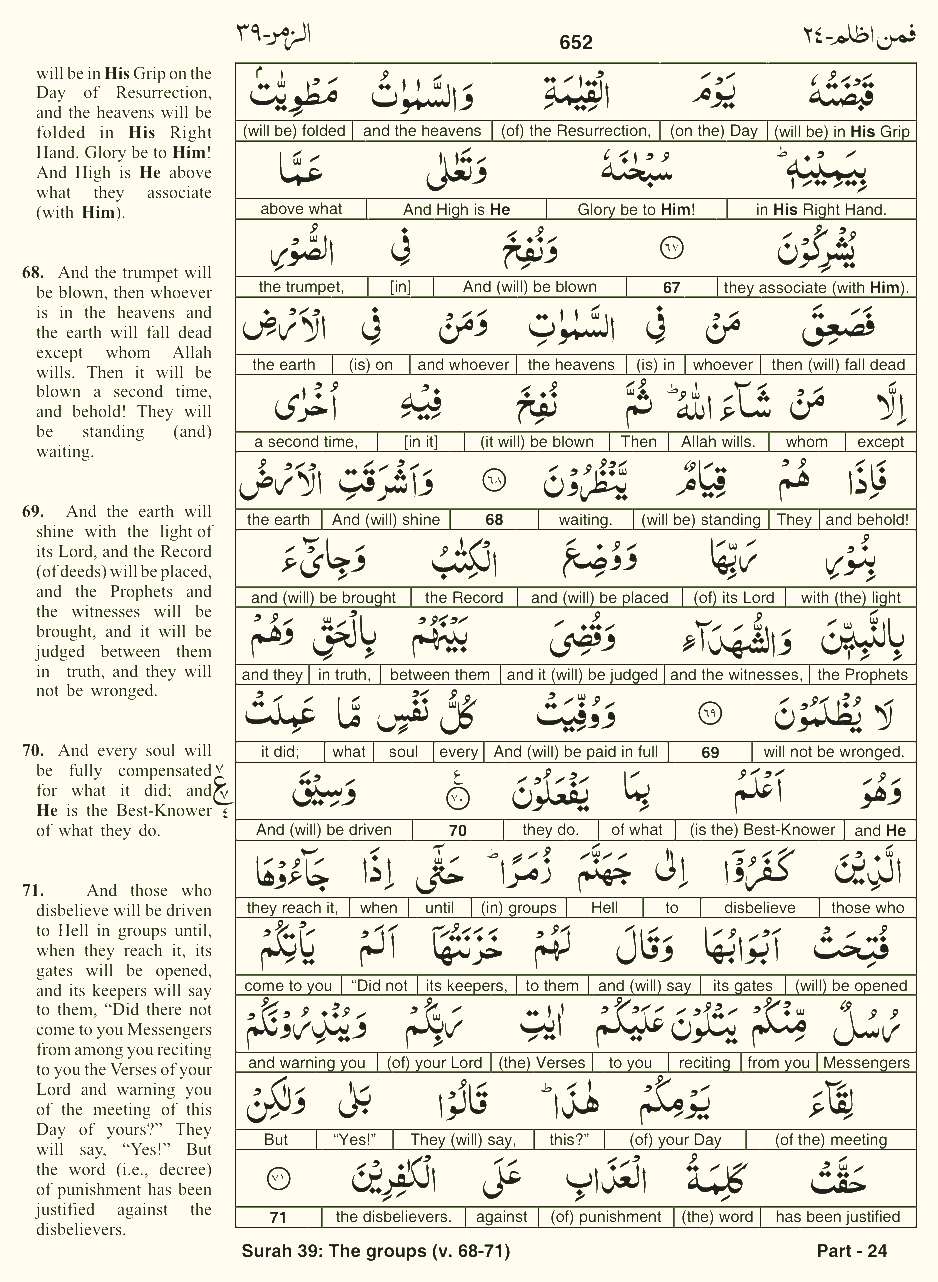 الزمر-٣٩ 652 فمن اظلم-٢٤
will be in His Grip on the
Day of Resurrection,
and the heavens will be
folded in His Right
Hand. Glory be to Him!
And High is He above
what they associate
(with Him).
68. And the trumpet will
be blown, then whoever
is in the heavens and
the earth will fall dead
except whom Allah
wills. Then it will be
blown a second time,
and behold! They will
be standing (and)
waiting.
69. And the earth will
shine with the light of
its Lord, and the Record
(of deeds) will be placed,
and the Prophets and
the witnesses will be
brought, and it will be
judged between them
in truth, and they will
not be wronged.
70. And every soul will
be fully compensated
for what it did; and
He is the Best-Knower
of what they do.
71. And those who
disbelieve will be driven
to Hell in groups until,
when they reach it, its
gates will be opened,
and its keepers will say
to them, “Did there not
come to you Messengers
from among you reciting
to you the Verses of your
Lord and warning you
of the meeting of this
Day of yours?” They
will say, “Yes!” But
the word (i.e., decree)
of punishment has been
justified against the
disbelievers.
قَبْضَتُهٗ يَوْمَ الْقِيٰمَةِ وَالسَّمٰوٰتُ مَطْوِيّٰتٌۢ
(will be) in His Grip (on the) Day (of) the Resurrection, and the heavens (will be) folded
بِيَمِيْنِهٖ ؕ سُبْحٰنَهٗ وَتَعٰلٰى عَمَّا
in His Right Hand. Glory be to Him! And High is He above what
يُشْرِكُوْنَ ٦٧ وَنُفِخَ فِى الصُّوْرِ
they associate (with Him). 67 And (will) be blown [in] the trumpet,
فَصَعِقَ مَنْ فِى السَّمٰوٰتِ وَمَنْ فِى الْاَرْضِ
then (will) fall dead whoever (is) in the heavens and whoever (is) on the earth
اِلَّا مَنْ شَآءَ اللّٰهُ ؕ ثُمَّ نُفِخَ فِيْهِ اُخْرٰى
except whom Allah wills. Then (it will) be blown [in it] a second time,
فَاِذَا هُمْ قِيَامٌ يَّنْظُرُوْنَ ٦٨ وَاَشْرَقَتِ الْاَرْضُ
and behold! They (will be) standing waiting. 68 And (will) shine the earth
بِنُوْرِ رَبِّهَا وَوُضِعَ الْكِتٰبُ وَجِاىْٓءَ
with (the) light (of) its Lord and (will) be placed the Record and (will) be brought
بِالنَّبِيّٖنَ وَالشُّهَدَآءِ وَقُضِىَ بَيْنَهُمْ بِالْحَقِّ وَهُمْ
the Prophets and the witnesses, and it (will) be judged between them in truth, and they
لَا يُظْلَمُوْنَ ٦٩ وَوُفِّيَتْ كُلُّ نَفْسٍ مَّا عَمِلَتْ
will not be wronged. 69 And (will) be paid in full every soul what it did;
وَهُوَ اَعْلَمُ بِمَا يَفْعَلُوْنَ ٧٠ ع وَسِيْقَ
and He (is the) Best-Knower of what they do. 70 And (will) be driven
الَّذِيْنَ كَفَرُوْٓا اِلٰى جَهَنَّمَ زُمَرًا ؕ حَتّٰٓى اِذَا جَآءُوْهَا
those who disbelieve to Hell (in) groups until when they reach it,
فُتِحَتْ اَبْوَابُهَا وَقَالَ لَهُمْ خَزَنَتُهَآ اَلَمْ يَاْتِكُمْ
(will) be opened its gates and (will) say to them its keepers, “Did not come to you
رُسُلٌ مِّنْكُمْ يَتْلُوْنَ عَلَيْكُمْ اٰيٰتِ رَبِّكُمْ وَيُنْذِرُوْنَكُمْ
Messengers from you reciting to you (the) Verses (of) your Lord and warning you
لِقَآءَ يَوْمِكُمْ هٰذَا ؕ قَالُوْا بَلٰى وَلٰكِنْ
(of the) meeting (of) your Day this?” They (will) say, “Yes!” But
حَقَّتْ كَلِمَةُ الْعَذَابِ عَلَى الْكٰفِرِيْنَ ٧١
has been justified (the) word (of) punishment against the disbelievers. 71
Surah 39: The groups (v. 68-71) Part - 24